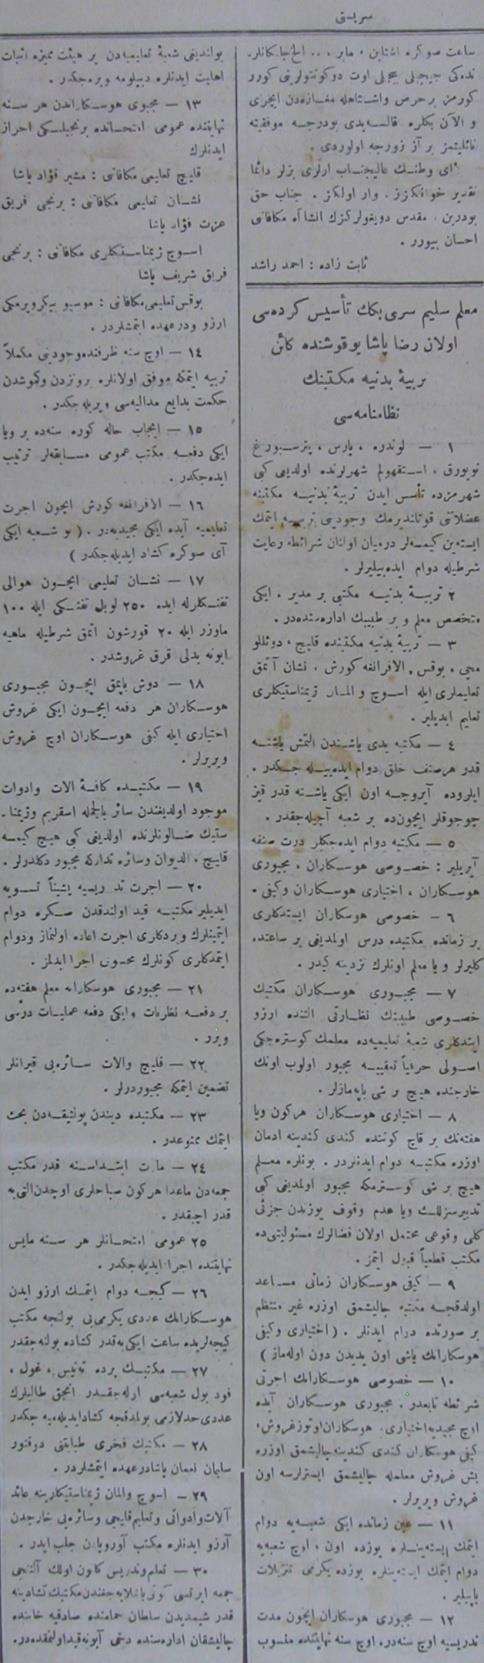 سربستی
ساعت صوكره اشتاين ، ماير . . . الخ جامكانلر
ندەكی جیجیلی بیجیلی اوت دوكونتولرینی كورر
كورمز برحرص واشتهاله مغازەدن ایچری
و الآن بكلره قالسەیدی بودرجه موفقیته
نائلیتمز بر آز زورجه اولوردی .
ای وطنك عالیجناب ارلری بزلر دائما
تقدیر خوانكزز . وار اولكز . جناب حق
بودرین ، مقدس دویغولركزك انشاالله مكافاتی
احسان بیورر .
ثابت زاده : احمد راشد
معلم سلیم سری بكك تأسیس كردەسی
اولان رضا پاشا یوقوشنده كائن
تربیۀ بدنیه مكتبنك
نظامنامەسی
١ — لوندره ، پارس ، پترسبورغ
نویورق ، استقهولم شهرلرنده اولدیغی كبی
شهرمزده تأسس ایدن تربیۀ بدنیه مكتبنه
عضلاتنی قوتلندیرمك وجودینی تربیه ایتمك
ایستەین كیمسەلر درمیان اولنان شرائطه رعایت
شرطیله دوام ایدەبیلیرلر .
٢ تربیۀ بدنیه مكتبی بر مدیر ، ایكی
متخصص معلم و بر طبیبك ادارەسندەدر .
٣ — تربیۀ بدنیه مكتبنده قلیچ ، دوئللو
مچی ، بوقس ، الافرانغه كورش ، نشان آتمق
تعلیملری ایله اسوچ و المان ژیمناستیكلری
تعلیم ایدیلیر .
٤ — مكتبه یدی یاشندن التمش یاشنه
قدر هرصنف خلق دوام ایدەبیلەجكدر .
ایلروده آیروجه اون ایكی یاشنه قدر قیز
چوجوقلر ایچوندە بر شعبه آچیلەجقدر .
٥ — مكتبه دوام ایدەجكلر درت صنفه
آیریلیر : خصوصی هوسكاران ، مجبوری
هوسكاران ، اختیاری هوسكاران وكیفی .
٦ — خصوصی هوسكاران ایستدكلری
بر زمانده مكتبده درس اولمدیغی بر ساعتده
كلیرلر و یا معلم اونلرك نزدینه كیدر .
٧ — مجبوری هوسكاران مكتبك
خصوصی طبیبنك نظارتی التنده ارزو
ایتدكلری شعبۀ تعلیمیەده معلمك كوسترەجكی
اصولی حرفیاً تعقیبه مجبور اولوب اونك
خارجنده هیچ بر شی یاپەمازلر .
٨ — اختیاری هوسكاران هركون ویا
هفتەنك بر قاچ كوننده كندی كندینه ادمان
اوزره مكتبه دوام ایدنلردر . بونلره معلم
هیچ بر شی كوسترمكه مجبور اولمدیغی كبی
تدبیرسزلك ویا عدم وقوف یوزندن جزئی
كلی وقوعی محتمل اولان قضالرك مسئولیتنی ده
مكتب قطعیاً قبول ایتمز .
٩ — كیفی هوسكاران زمانی مساعد
اولدقجه مكتبه چالیشمق اوزره غیر منتظم
بر صورتده دوام ایدنلر . ( اختیاری وكیفی
هوسكارانك یاشی اون یدیدن دون اولەماز )
١٠ — خصوصی هوسكارانك اجرتی
شرائطه تابعدر . مجبوری هوسكاران آیده
اوچ مجیدیه اختیاری ، هوسكاران اوتوز غروش ،
كیفی هوسكاران كندی كندینه چالیشمق اوزره
بش غروش معلمله چالیشمق ایسترلرسه اون
غروش ویریرلر .
١١ — عین زمانده ایكی شعبەیه دوام
ایتمك ایستەینلره یوزده اون ، اوچ شعبەیه
دوام ایتمك ایستەینلره یوزده یكرمی تنزیلات
یاپیلیر .
١٢ — مجبوری هوسكاران ایچون مدت
تدریسیه اوچ سنەدر . اوچ سنه نهایتنده منسوب
بولندیغی شعبۀ تعلیمیەدن بر هیئت ممیزه اثبات
اهلیت ایدنلره دیپلومه ویرەجكدر .
١٣ — مجبوری هوسكاراندن هر سنه
نهایتنده عمومی امتحانده برنجیلكی احراز
ایدنلرك
قلیچ تعلیمی مكافاتی : مشیر فؤاد پاشا
نشان تعلیمی مكافاتی : برنجی فریق
عزت فؤاد پاشا
اسوچ ژیمناستیكلری مكافاتی : برنجی
فریق شریف پاشا
بوقس تعلیمی مكافاتی : موسیو
ارزو ودرعهده ایتمشلردر .
١٤ — اوچ سنه ظرفنده وجودینی مكملاً
تربیه ایتمكه موفق اولانلره برونزدن وكموشدن
حكمت بدایع مدالیەسی ویریلەجكدر .
١٥ — ایجاب حاله كوره سنەده بر ویا
ایكی دفعه مكتب عمومی مسابقەلر ترتیب
ایدەجكدر .
١٦ — الافرانغه كورش ایچون اجرت
تعلیمیه آیده ایكی مجیدیەدر . ( بو شعبه ایكی
آی صوكره كشاد ایدیلەجكدر )
١٧ — نشان تعلیمی ایچون هوالی
تفنكلرله آیده ٢٥٠ لوبل تفنكی ایله ١٠٠
ماوزر ایله ٢٠ قورشون اتمق شرطیله ماهیه
ابونه بدلی قرق غروشدر .
١٨ — دوش یاپمق ایچون مجبوری
هوسكاران هر دفعه ایچون ایكی غروش
اختیاری ایله كیفی هوسكاران اوچ غروش
ویریرلر .
١٩ — مكتبده كافۀ الات وادوات
موجود اولدیغندن سائر بالجمله اسقریم وژیمنا-
ستیك صالونلرنده اولدیغی كبی هیچ كیمسه
قلیچ ، الدیوان وسائره تداركنه مجبور دكلدرلر .
٢٠ — اجرت تدریسیه پشیناً تسویه
ایدیلیر مكتبه قید اولندقدن صكره دوام
ایتمینلرك ویردكلری اجرت اعاده اولنماز ودوام
ایتمدكلری كونلرك محسوبی اجرا ایدلمز .
٢١ — مجبوری هوسكارانه معلم هفتەده
بر دفعه نظریات و ایكی دفعه عملیات درسی
ویرر .
٢٢ — قلیچ والات سائرەیی قیرانلر
تضمین ایتمكه مجبوردرلر .
٢٣ — مكتبده دیندن پولتیقەدن بحث
ایتمك ممنوعدر .
٢٤ — مارت ابتداسنه قدر مكتب
جمعەدن ماعدا هركون صباحلری اوچدن التی یه
قدر اچیقدر .
٢٥ عمومی امتحانلر هر سنه مایس
نهایتنده اجرا ایدیلەجكدر .
٢٦ — كیجه دوام ایتمك ارزو ایدن
هوسكارانك عددی یكرمی یی بولنجه مكتب
كیجەلریده ساعت ایكی یه قدر كشاده بولنەجقدر
٢٧ — مكتبك برده تەنیس ، غولف ،
فوت بول شعبەسی اولەجقدر انجق طالبلرك
عددی حد لازمی بولمدقجه كشاد ایدیلەمیەجكدر
٢٨ — مكتبك فخری طبابتنی دوقتور
سلیمان نعمان پاشا درعهده ایتمشلردر .
٢٩ — اسوچ والمان ژیمناستیكلرینه عائد
آلات وادواتی وتعلیم قلیجی وسائرەیی خارجدن
آرزو ایدنلره مكتب آوروپادن جلب ایدر .
٣٠ — تعلم وتدریس كانون اولك آلتنجی
جمعه ایرتسی كونی باشلایەجغندن مكتبك كشادینه
قدر شیمدیدن سلطان حمامنده صادقیه خاننده
چالیشقان ادارەسنده دخی آبونه قید اولنمقدەدر .